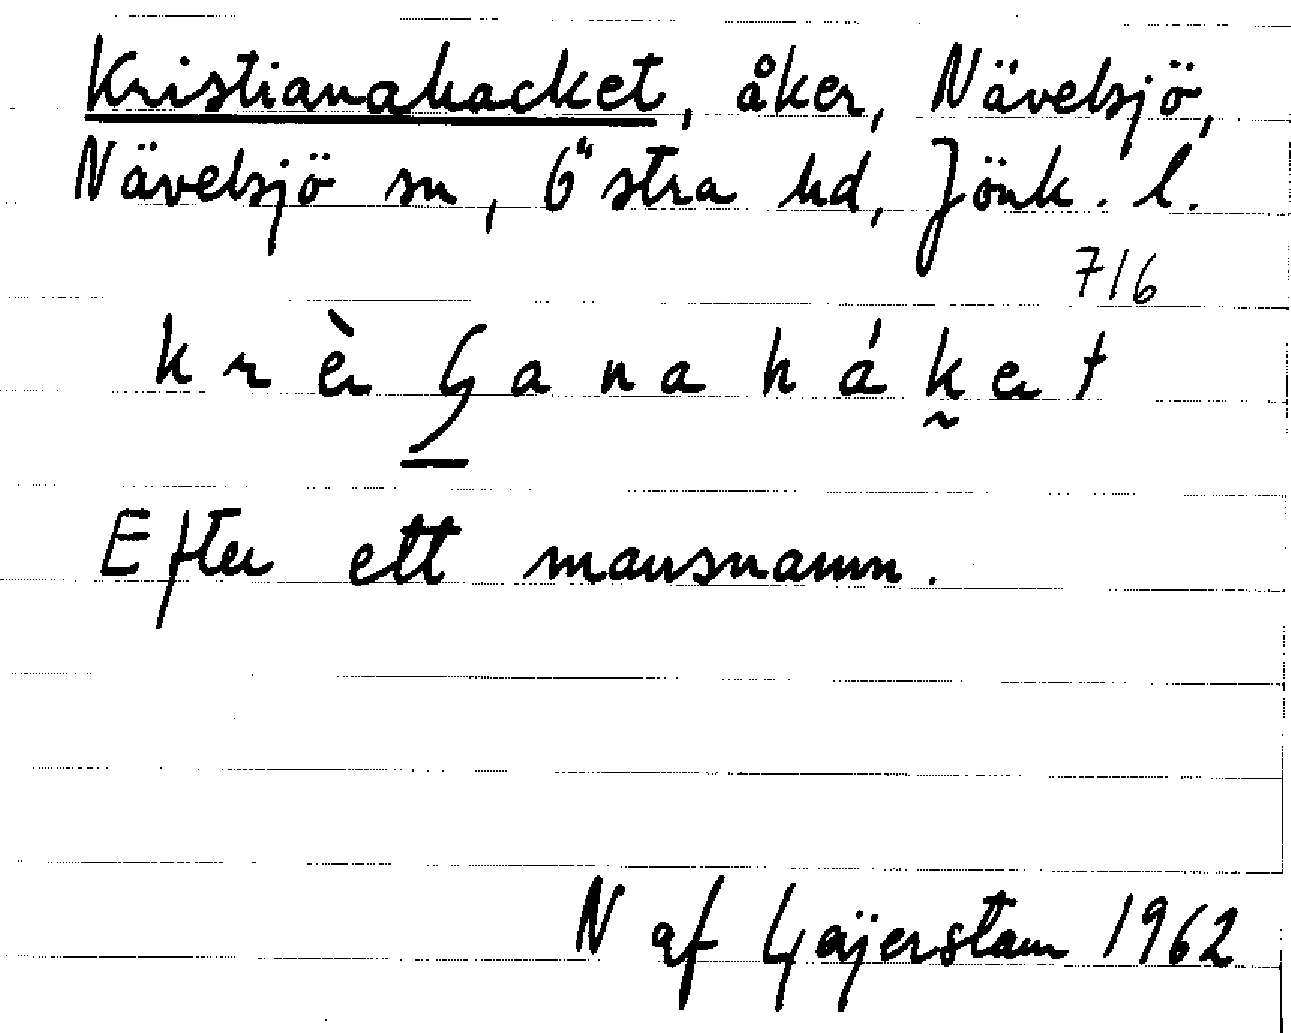 Kristianahacket, åker, Nävelsjö,
Nävelsjö sn, Östra hd, Jönk. l.
716
Efter ett mansnamn.
N af Gäijerstam 1962